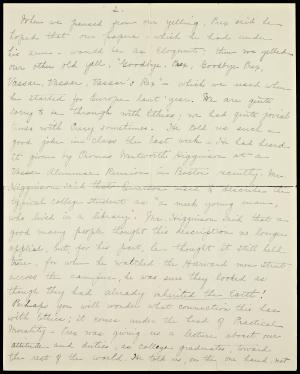 2.
When we paused from our yelling, Prex said he
hoped that our papers - which he had under
his arm - would be as eloquent; then we yelled
our other old yell, "Goodbye, Prex, Goodbye Prex,
Vassar, Vassar, Vassar's Prex" - which we used when
he started for Europe last year. We are quite
sorry to be through with Ethics; we had quite jovial
times with Prexy sometimes. He told us such a
good joke in class the last week - He had heard
it given by Thomas Wentworth Higginson at a
Vassar Alumnae Reunion in Boston recently. Mr.
Higginson said that Emerson used to describe the
typical college student as "a meek young man,
who lived in a library". Mr. Higginson said that a
good many people thought this description no longer
applied, but, for his part, he thought it still held
true - for when he watched the Harvard men strut
across the campus, he was sure they looked as
though they had already inherited the Earth!
Perhaps you will wonder what connection this has
with Ethics; it comes under the head of Practical
Morality - Prex was giving us a lecture about our
attitude and duties, as college graduates, toward
the rest of the world. He told us, on the one hand, not